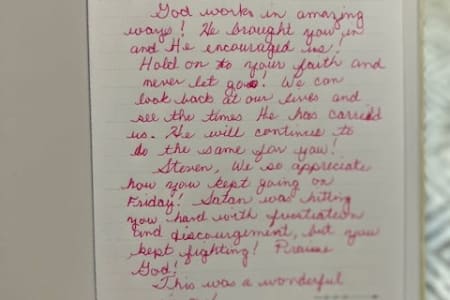 God works in amazing
ways! He brought you in
and He encouraged us!
Hold on to your faith and
never let go! We can
look back at our lives and
see the times He has carried
us. He will continue to
do the same for you!
Steven, We so appreciate
how you kept going on
Friday! Satan was hitting
you hard with frustration
and discouragement, but you
kept fighting! Praise
God!
This was a wonderful